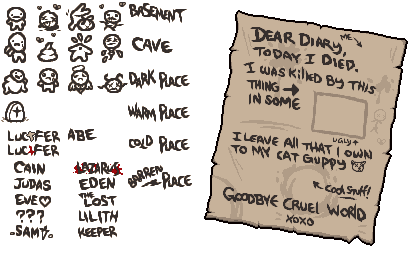 BASEMENT
CAVE
DARK PLACE
WARM PLACE
COLD PLACE
BARREN PLACE
LUCIFER ABE
LUCIFER
CAIN LAZARUS
JUDAS EDEN
EVE THE LOST
??? LILITH
SAMS KEEPER
DEAR DIARY,
ME
TODAY I DIED.
I WAS KILLED BY THIS
THING
IN SOME
UGLY
I LEAVE ALL THAT I OWN
TO MY CAT GUPPY
COOL STUFF!
GOODBYE CRUEL WORLD
XOXO